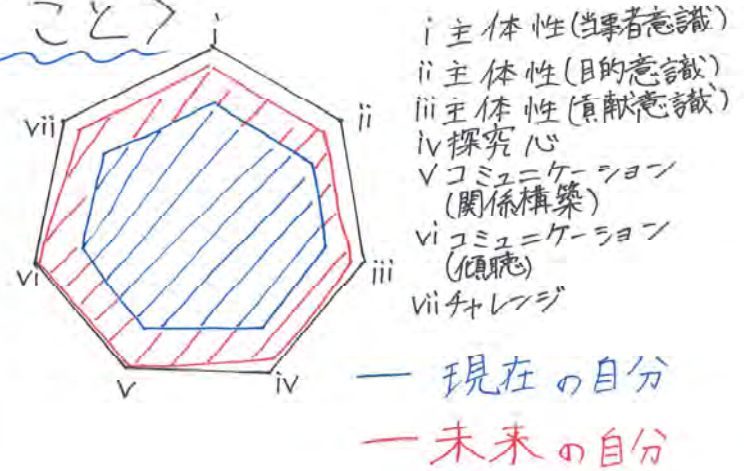 こと>
i
ii
iii
iv
v
vi
vii
i 主体性(当事者意識)
ii 主体性(目的意識)
iii 主体性(貢献意識)
iv 探究心
v コミュニケーション
(関係構築)
vi コミュニケーション
(傾聴)
vii チャレンジ
— 現在の自分
— 未来の自分